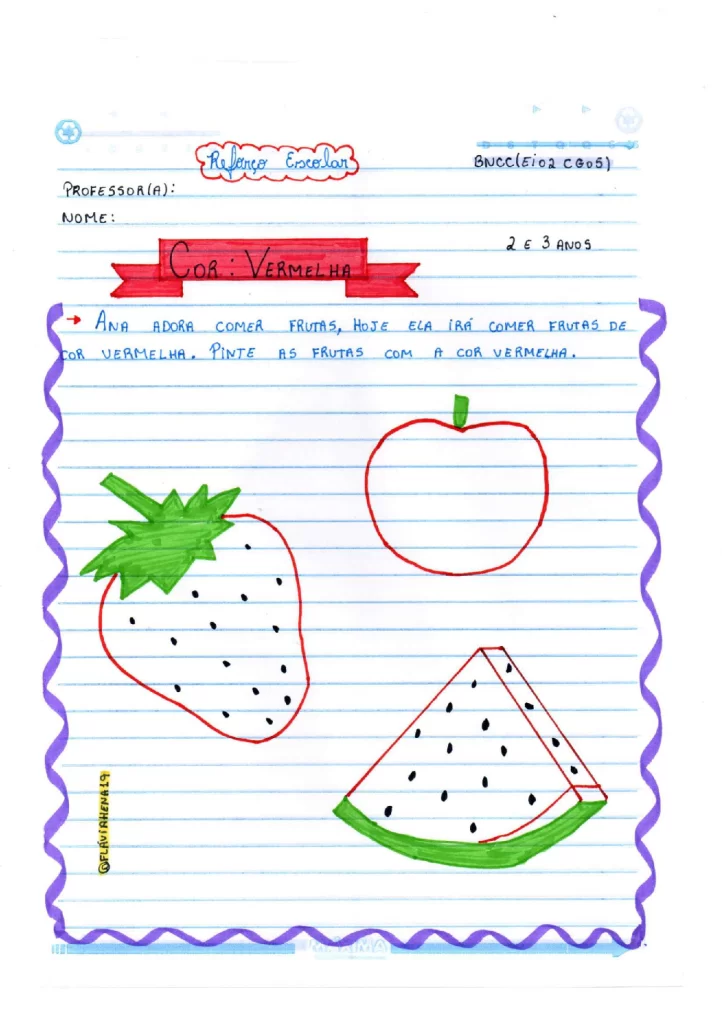 Reforço Escolar
BNCC(Ei02 CG05)
PROFESSOR(A):
NOME:
2 E 3 ANOS
COR: VERMELHA
→ ANA ADORA COMER FRUTAS, HOJE ELA IRÁ COMER FRUTAS DE
COR VERMELHA. PINTE AS FRUTAS COM A COR VERMELHA.
@FLÁVIAHENA19